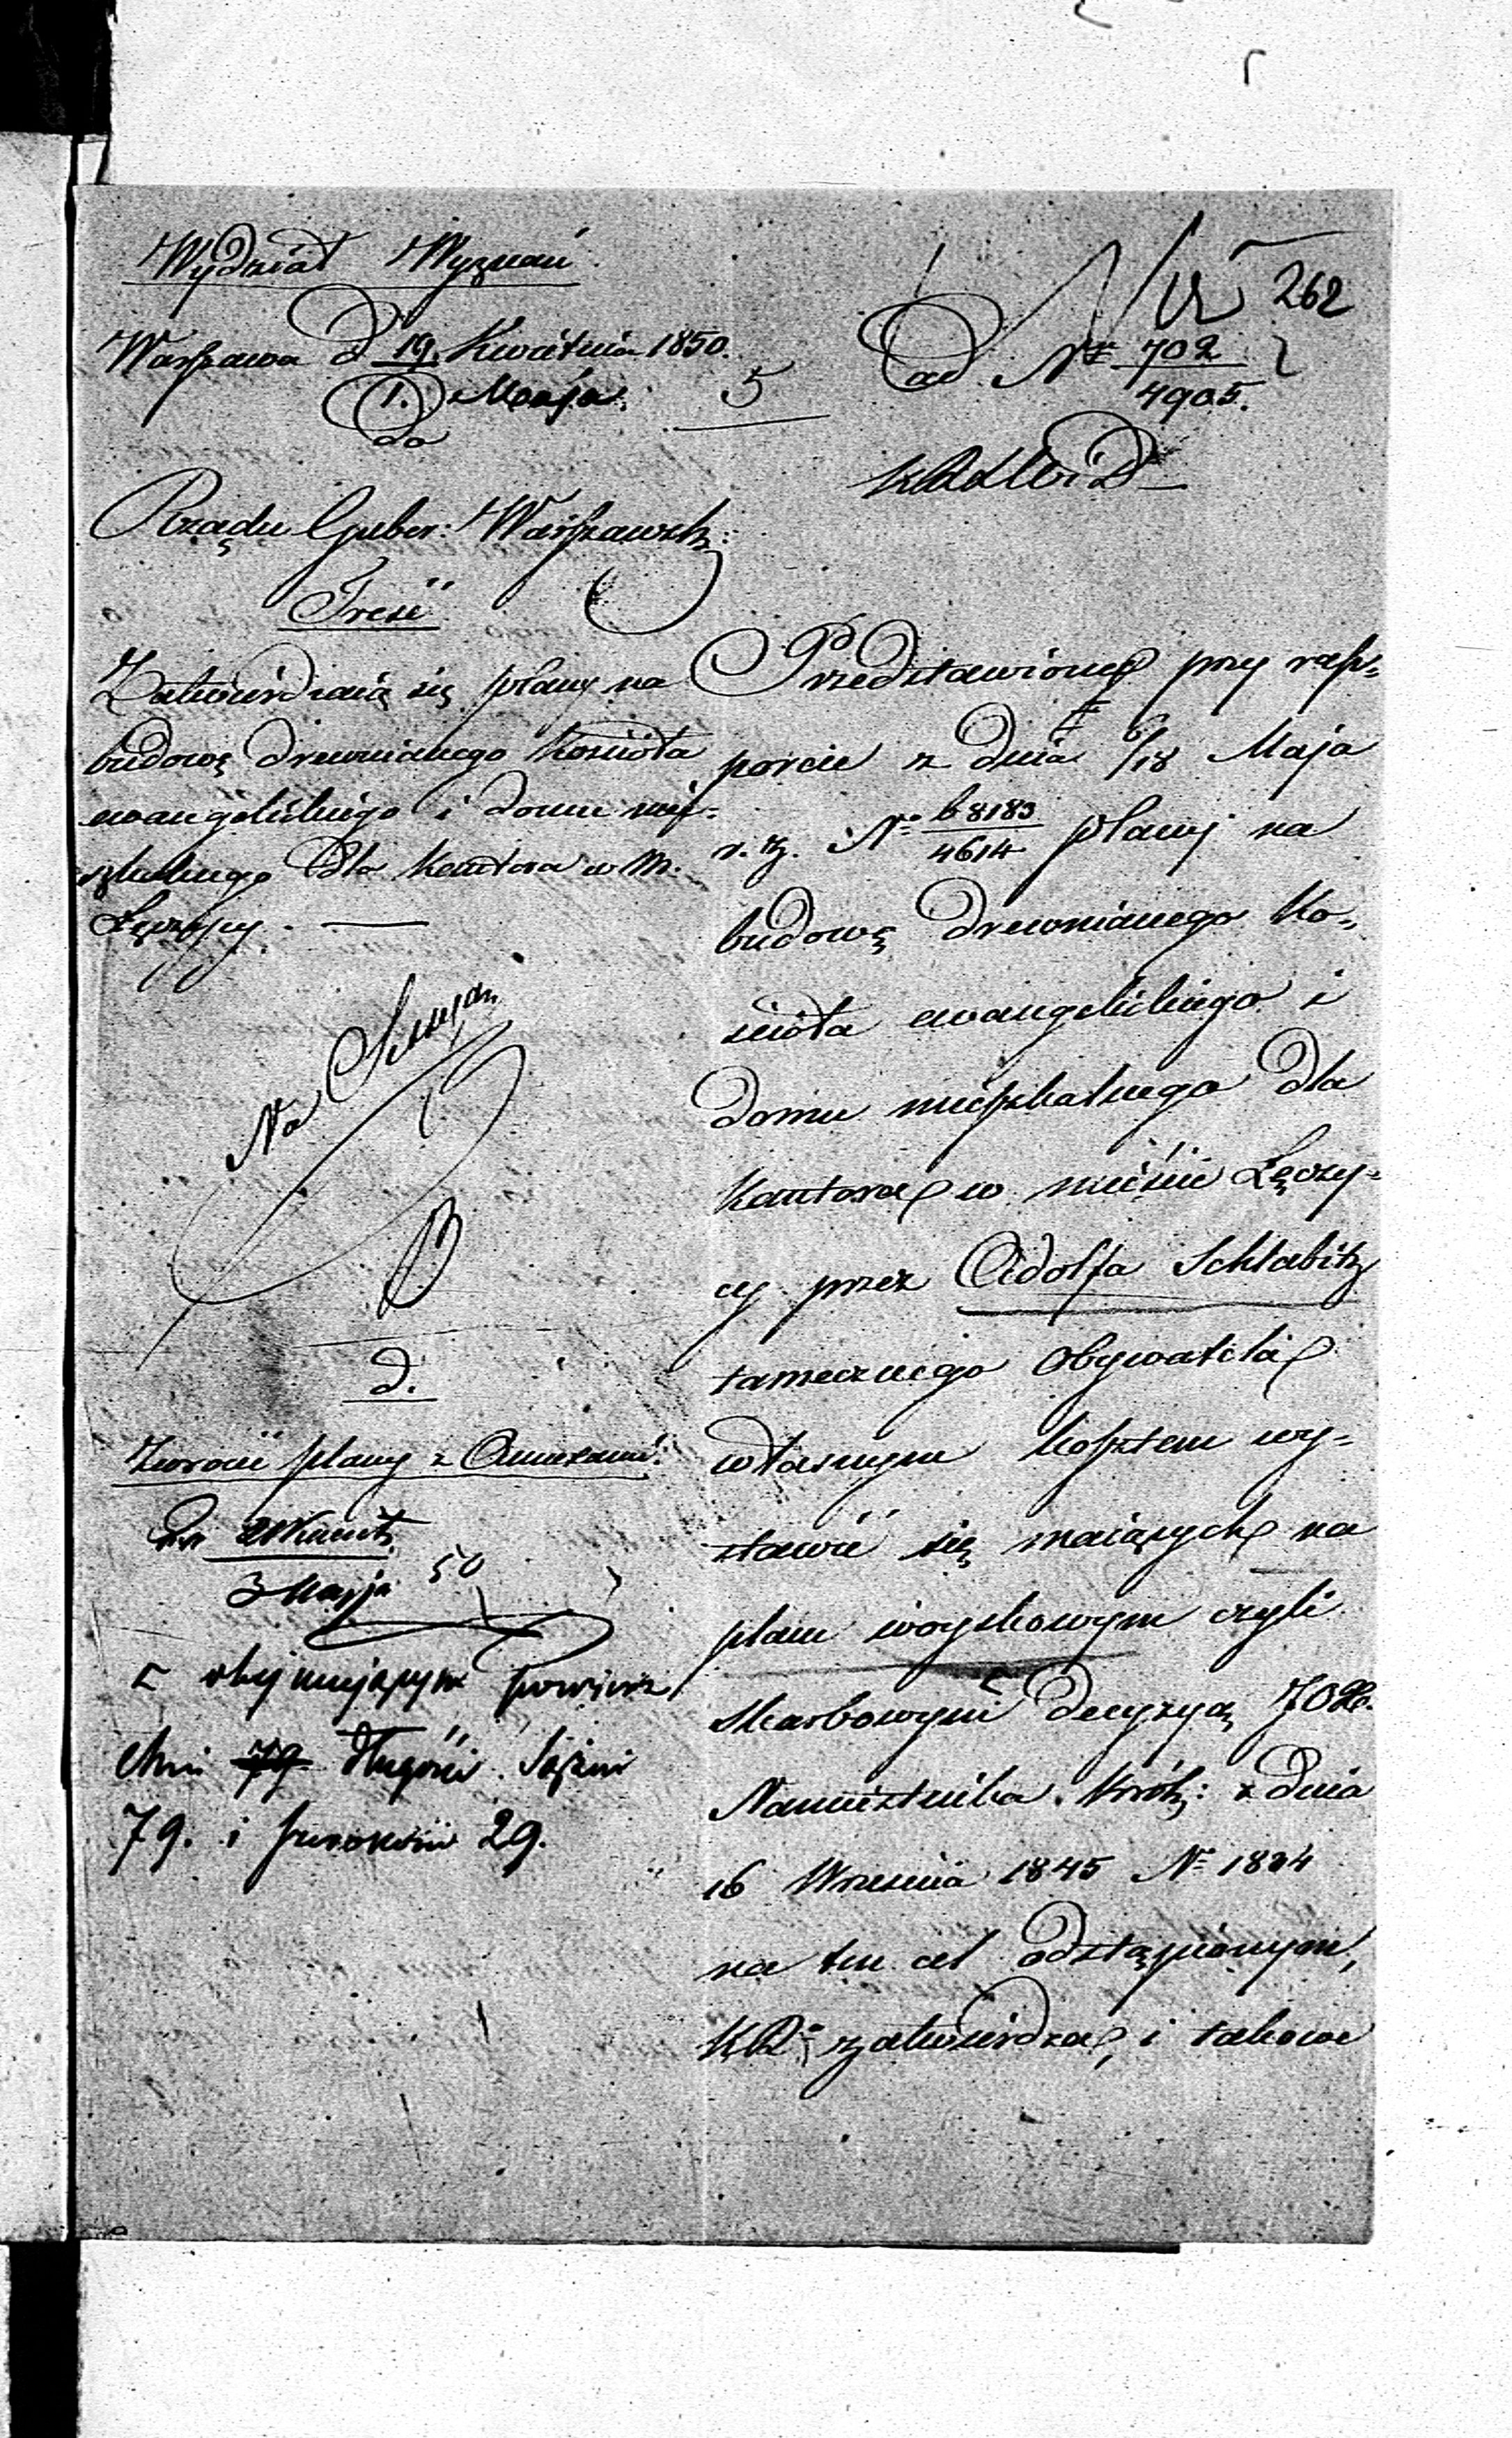 Wydział Wyznań.
Warszawa d 19. Kwietnia 1850.
1. Maja
5
262
ad. Nr 702
4905.
Do
Rządu Guber: Warszawsk:
Treść
Zatwierdzaią się plany na
budowę drewnianego kościoła
ewangelickiego i domu mie-
szkalnego dla Kantora w M.
Łęczycy.
Na
B
d.
Zwrócić plany z
21 Kwiet.
3 Maja 50
z obejmującym powierz
chni 79 długości Sążni
79. i szerokości 29.
Przedstawione przy rap-
porcie z dnia 6/18 Maja
r. z. No 68183
4614 plany na
budowę drewnianego Ko-
ścioła ewangelickiego i
domu mieszkalnego dla
Kantora w mieście Łęczy-
cy przez Adolfa Schlabitz
tamecznego Obywatela
własnym kosztem wy-
stawić się maiących na
placu woyskowym czyli
skarbowym decyzyą JOX.
Namiestnika Król: z dnia
16 Września 1845 No 1834
na ten cel odstąpionym,
KR. zatwierdza, i takowe